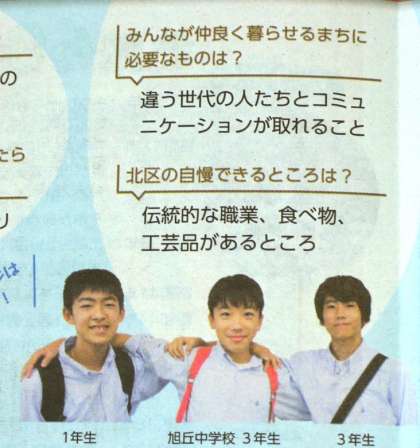 みんなが仲良く暮らせるまちに
必要なものは？
違う世代の人たちとコミュ
ニケーションが取れること
北区の自慢できるところは？
伝統的な職業、食べ物、
工芸品があるところ
の
たら
リ
は
！
1年生
旭丘中学校 3年生
3年生